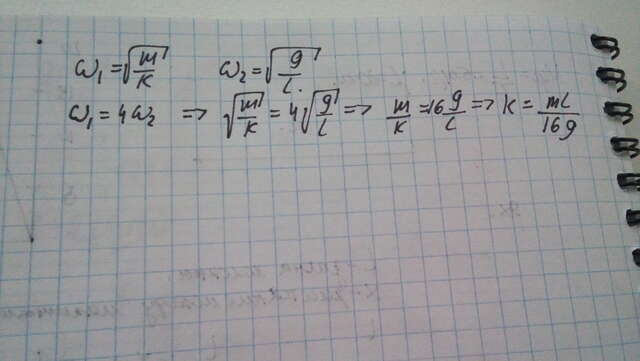 ω₁ = √(m/k) ω₂ = √(g/L)
ω₁ = 4ω₂ => √(m/k) = 4√(g/L) => m/k = 16 g/L => k = mL/16g